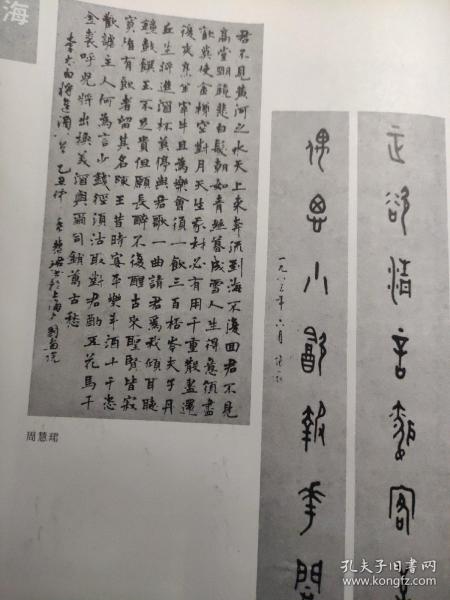 海
君不見黃河之水天上來奔流到海不復回君不見
高堂明鏡悲白髮朝如青絲暮成雪人生得意須盡
歡莫使金樽空對月天生我材必有用千金散盡還
復來烹羊宰牛且為樂會須一飲三百杯岑夫子丹
丘生將進酒杯莫停與君歌一曲請君為我傾耳聽
鐘鼓饌玉不足貴但願長醉不復醒古來聖賢皆寂
寞惟有飲者留其名陳王昔時宴平樂斗酒十千恣
歡謔主人何為言少錢徑須沽取對君酌五花馬千
金裘呼兒將出換美酒與爾同銷萬古愁
李太白將進酒一首 乙丑秋 周慧珺書於上海
周慧珺
正欲清言聞客
偶思小飲報花開
一九八三年六月
孔夫子旧书网
www.kongfz.com